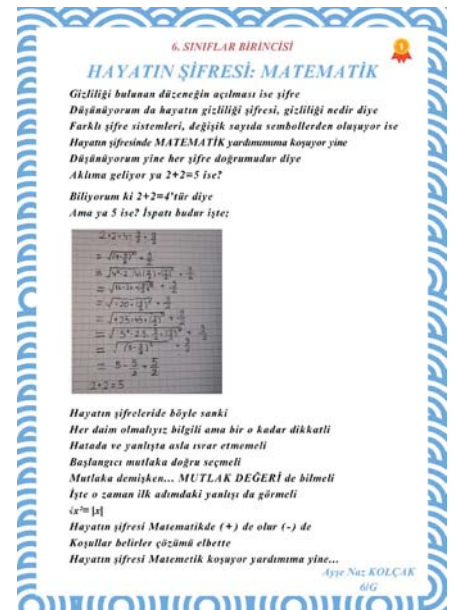 6. SINIFLAR BİRİNCİSİ
1
HAYATIN ŞİFRESİ: MATEMATİK
Gizliliği bulunan düzeneğin açılması ise şifre
Düşünüyorum da hayatın gizliliği şifresi, gizliliği nedir diye
Farklı şifre sistemleri, değişik sayıda sembollerden oluşuyor ise
Hayatın şifresinde MATEMATİK yardımımıma koşuyor yine
Düşünüyorum yine her şifre doğrumudur diye
Aklıma geliyor ya 2+2=5 ise?
Biliyorum ki 2+2=4'tür diye
Ama ya 5 ise? İspatı budur işte;
2+2=5
Hayatın şifreleride böyle sanki
Her daim olmalıyız bilgili ama bir o kadar dikkatli
Hatada ve yanlışta asla ısrar etmemeli
Başlangıcı mutlaka doğru seçmeli
Mutlaka demişken... MUTLAK DEĞERİ de bilmeli
İşte o zaman ilk adımdaki yanlışı da görmeli
√x²= |x|
Hayatın şifresi Matematikde (+) de olur (-) de
Koşullar belirler çözümü elbette
Hayatın şifresi Matemetik koşuyor yardımıma yine...
Ayşe Naz KOLÇAK
6/G